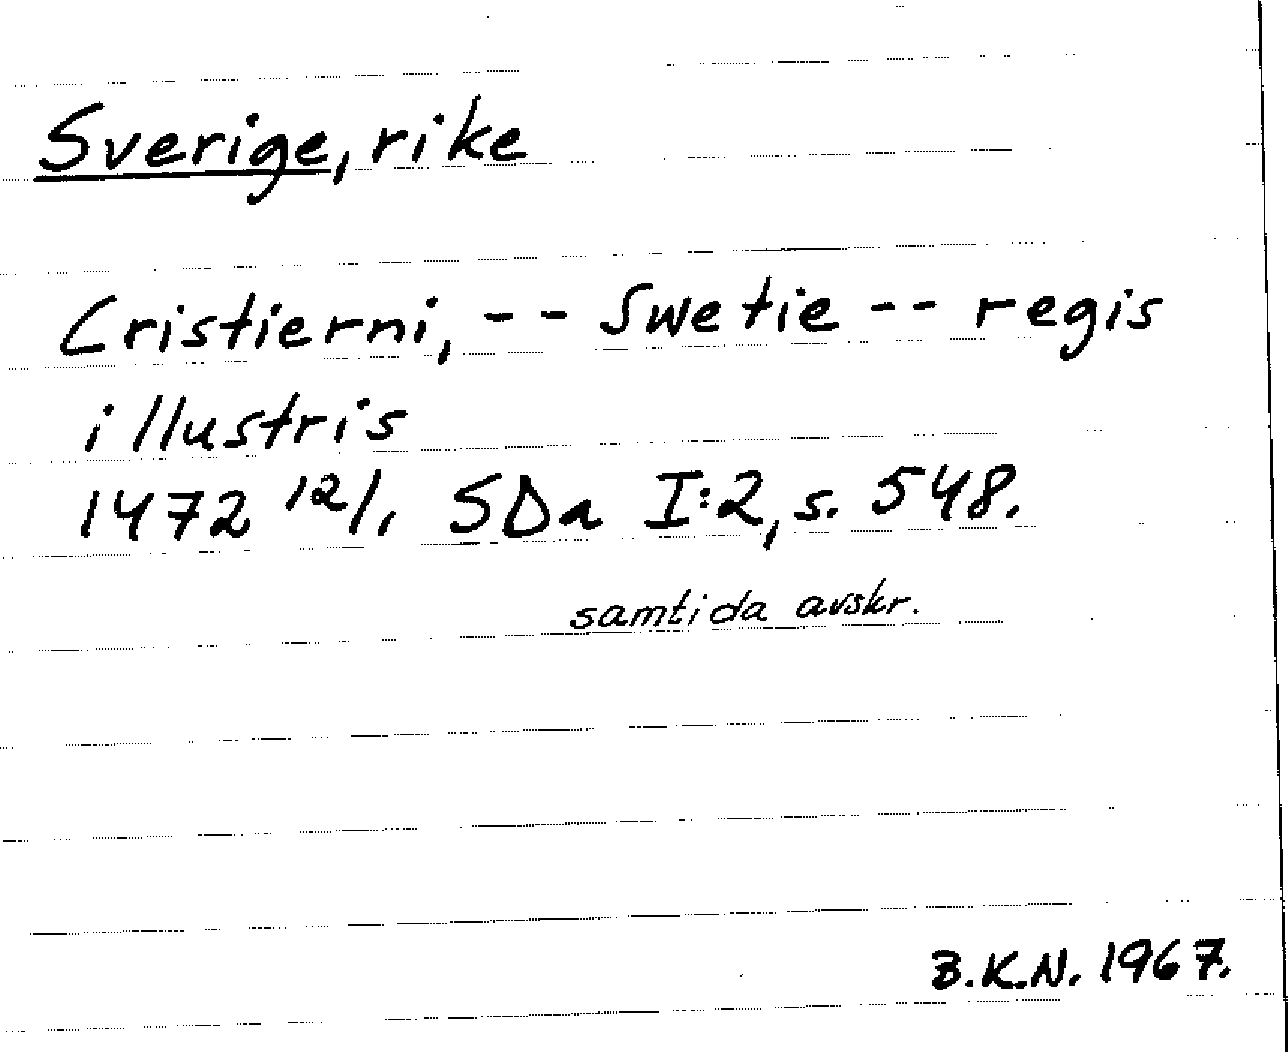 Sverige, rike
Cristierni, -- Swetie -- regis
illustris
1472 12/1 SDa I:2, s. 548.
samtida avskr.
B.K.N. 1967.